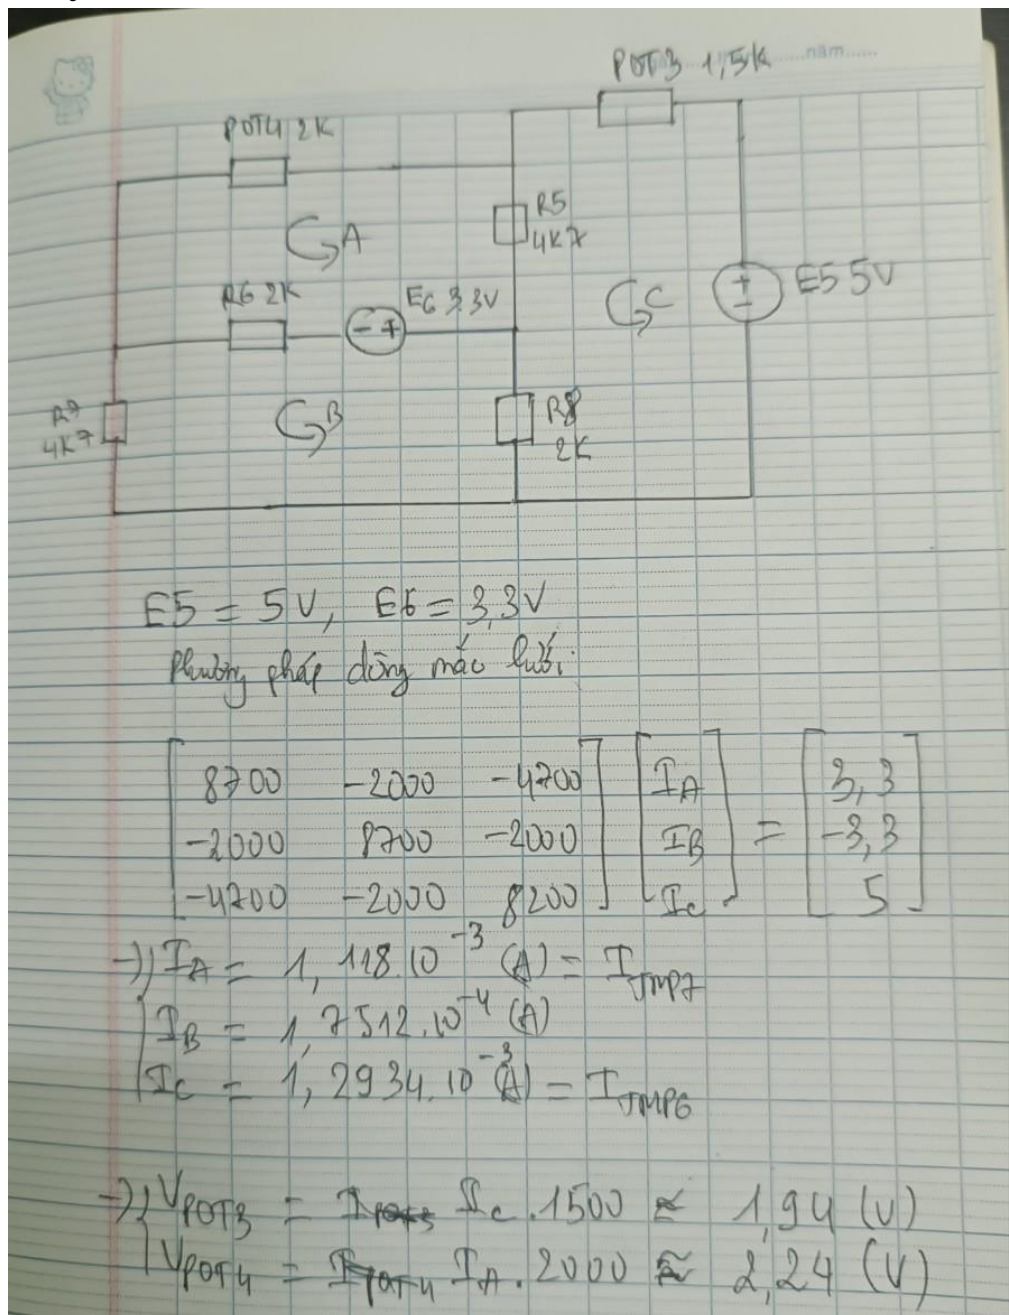 năm
POT3 1,5K
POT4 2K
R5
4K7
A
R6 2K
E6 3.3V
C
E5 5V
R7
4K7
B
R8
2K
E5 = 5V, E6 = 3,3V
Phương pháp dòng mắc lưới:
[ 8700 -2000 -4700 ] [ IA ] = [ 3,3 ]
[ -2000 8700 -2000 ] [ IB ] = [ -3,3 ]
[ -4700 -2000 8200 ] [ IC ] = [ 5 ]
→ { IA = 1,118.10^-3 (A) = I_JMP7
IB = 1,7512.10^-4 (A)
IC = 1,2934.10^-3 (A) = I_JMP6
→ { V_POT3 = Ic . 1500 ≈ 1,94 (V)
V_POT4 = IA . 2000 ≈ 2,24 (V)